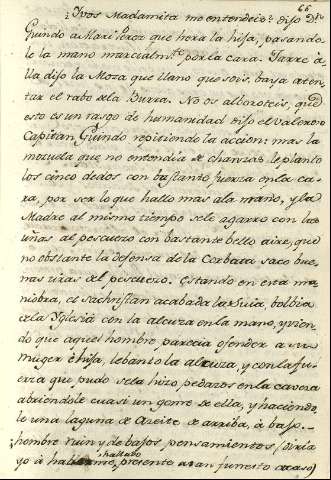 66
¿Ivos Madamita no entendeis? dijo Dn.
Guindo a Mari Perez que hera la hija, pasando-
le la mano marcialmte. por la cara. Jarre a-
lla dijo la Moza que llano que sois, baya a ten-
tar el rabo de la Burra. No os alboroteis, que
esto es un rasgo de humanidad dijo el valoroso
Capitan Guindo repitiendo la accion: mas la
mozuela que no entendia de chanzas le planto
los cinco dedos con bastante fuerza en la ca-
ra, por ser lo que hallo mas a la mano, y la
Madre al mismo tiempo se le agarro con las
uñas al pescuezo con bastante bello aire, que
no obstante la defensa de la Corbata saco bue-
nas tiras del pescuezo. Estando en esta ma-
niobra, el sachristan acabada la suia, bolbia
de la Yglesia con la alcuza en la mano, y vien-
do que aquel hombre parecia ofender a su
muger e hija, lebanto la alcuza, y con la fu-
erza que pudo se la hizo pedazos en la caveza
abriendole cuasi un geme de ella, y haciendo-
le una laguna de Azeite de arriba, a bajo.
¡hombre ruin y de bajos pensamientos (diria
yo a hallarme presente a tan funesto acaso)